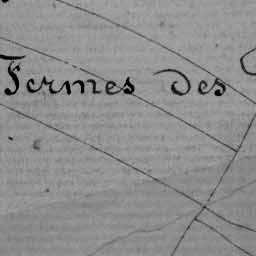 Fermes des